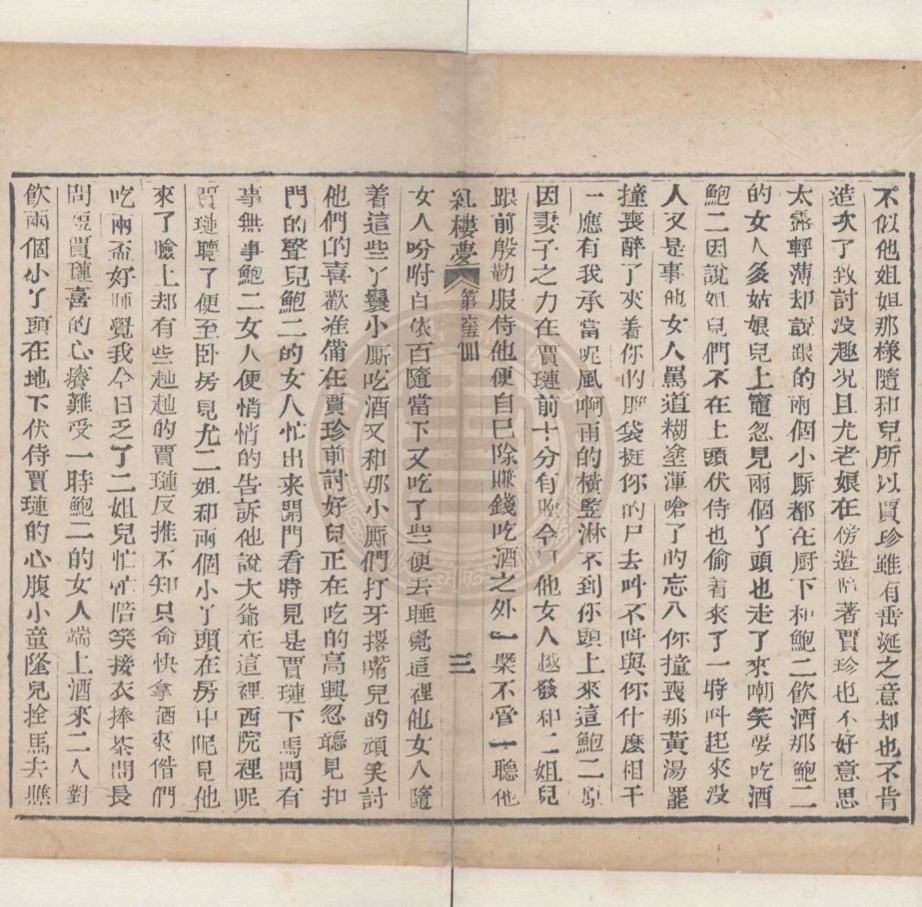 不似他姐姐那樣隨和兒所以賈珍雖有垂涎之意却也不肯
造次了致討没趣况且尤老娘在傍邊陪著賈珍也不好意思
太露輕薄却説跟的兩個小厮都在厨下和鮑二飲酒那鮑二
的女人多姑娘兒上竈忽見兩個丫頭也走了來嘲笑要吃酒
鮑二因説姐兒們不在上頭伏侍也偷着來了一時呌起來没
人又是事他女人罵道糊塗渾嗆了的忘八你撞喪那黄湯罷
撞喪醉了夾着你的腦袋挺你的尸去呌不呌與你什麽相干
一應有我承當呢風啊雨的横竪淋不到你頭上來這鮑二原
因妻子之力在賈璉前十分有臉今日他女人越發和二姐兒
跟前殷勤服侍他便自已除賺錢吃酒之外一槩不管一聽他
紅樓夢 第至五囬 三
女人吩咐百依百隨當下又吃了些便去睡覺這裡他女人隨
着這些丫鬟小厮吃酒又和那小厮們打牙撂嘴兒的頑笑討
他們的喜歡准備在賈珍前討好兒正在吃的高興忽聽見扣
門的聲兒鮑二的女人忙出來開門看時見是賈璉下馬問有
事無事鮑二女人便悄悄的告訴他說大爺在這裡西院裡呢
賈璉聽了便至卧房見尤二姐和兩個小丫頭在房中呢見他
來了臉上却有些赸赸的賈璉反推不知只命快拿酒來偺們
吃兩盃好睡覺我今日乏了二姐兒忙忙陪笑接衣捧茶問長
問短賈璉喜的心癢難受一時鮑二的女人端上酒來二人對
飲兩個小丫頭在地下伏侍賈璉的心腹小童隆兒拴馬去瞧